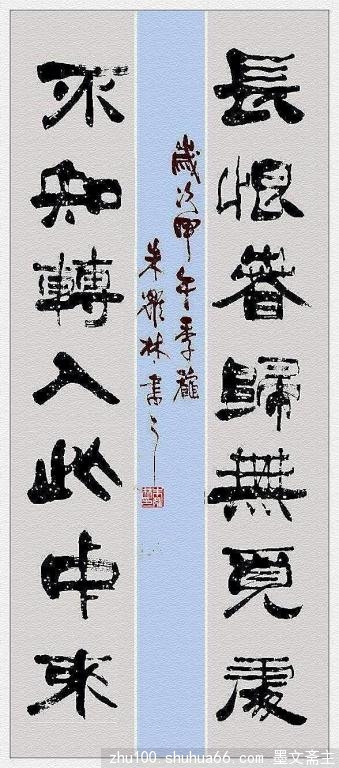 長恨春歸無覓處
不知轉入此中來
歲次甲午季
朱林書之
zhu100.shuhua66.com 墨文斋主